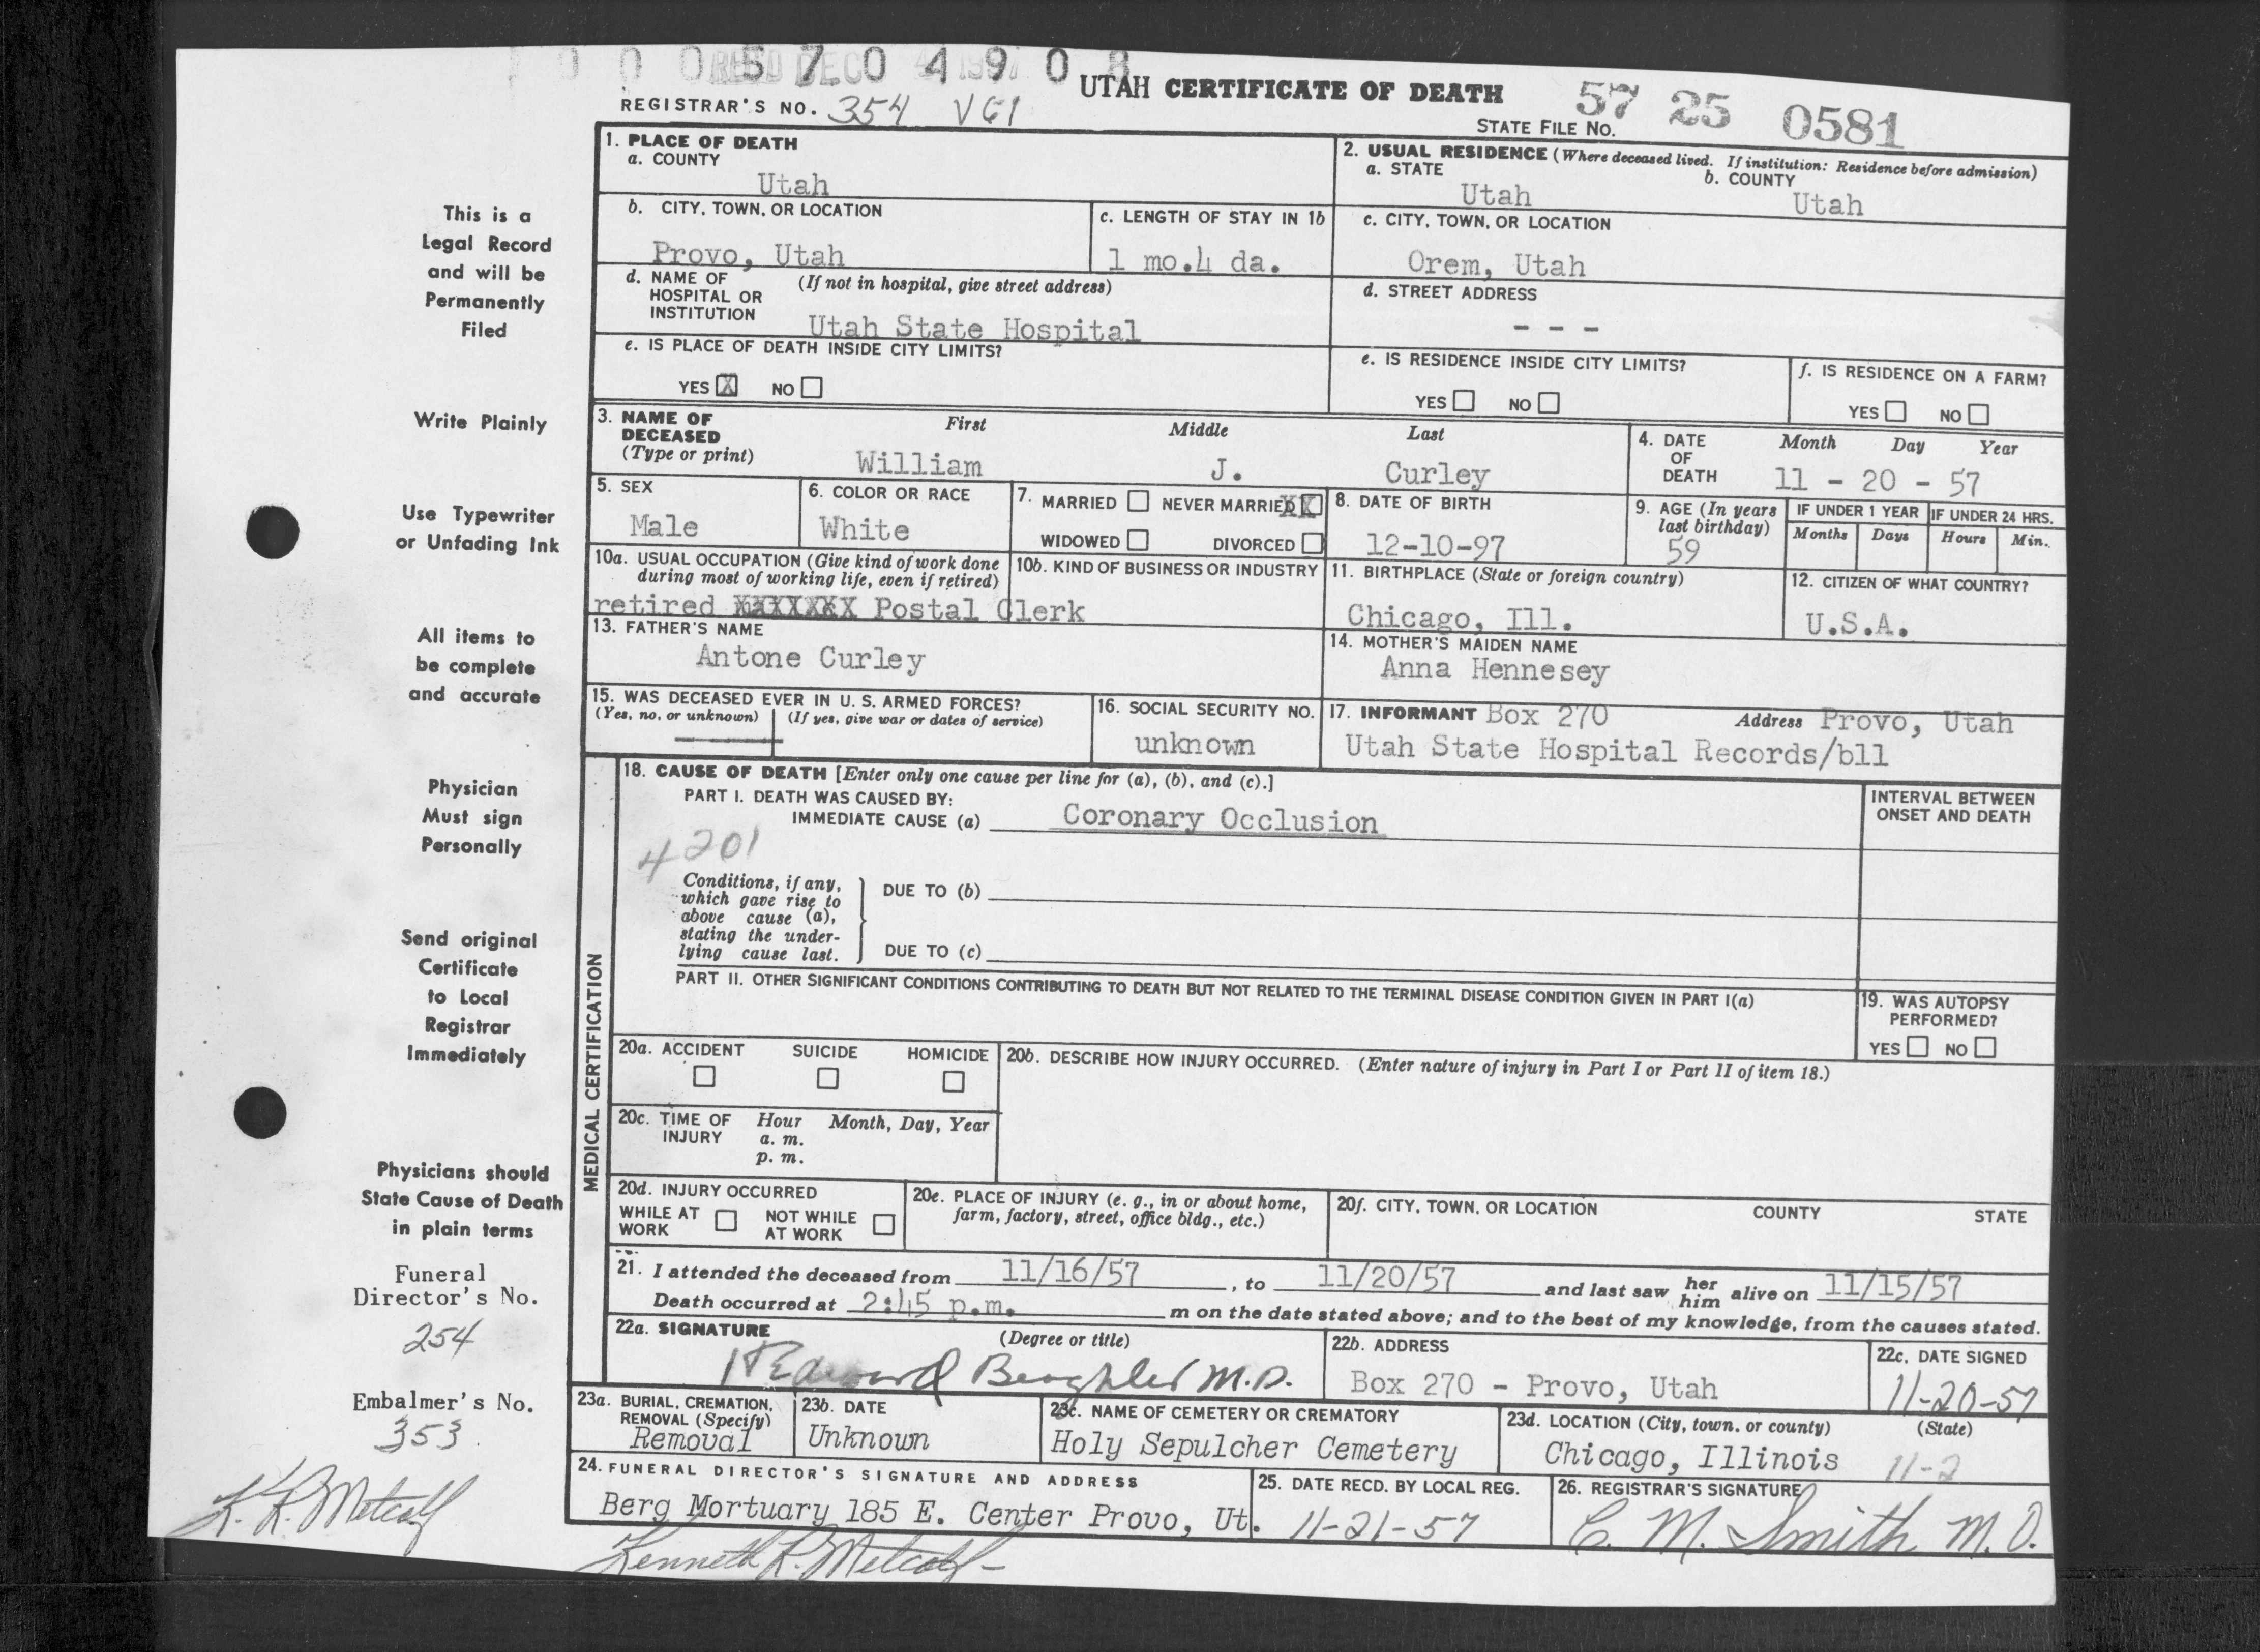 0 0 0 5 7 0 4 9 0 8
UTAH CERTIFICATE OF DEATH
57 25 0581
REGISTRAR'S NO. 354 V61
STATE FILE NO.
This is a
Legal Record
and will be
Permanently
Filed
Write Plainly
Use Typewriter
or Unfading Ink
All items to
be complete
and accurate
Physician
Must sign
Personally
Send original
Certificate
to Local
Registrar
Immediately
Physicians should
State Cause of Death
in plain terms
Funeral
Director's No.
254
Embalmer's No.
353
K. R. Metcalf
1. PLACE OF DEATH
a. COUNTY
Utah
2. USUAL RESIDENCE (Where deceased lived. If institution: Residence before admission)
a. STATE
Utah
b. COUNTY
Utah
b. CITY, TOWN, OR LOCATION
Provo, Utah
c. LENGTH OF STAY IN 1b
1 mo.4 da.
c. CITY, TOWN, OR LOCATION
Orem, Utah
d. NAME OF HOSPITAL OR INSTITUTION (If not in hospital, give street address)
Utah State Hospital
d. STREET ADDRESS
- - -
e. IS PLACE OF DEATH INSIDE CITY LIMITS?
YES X NO
e. IS RESIDENCE INSIDE CITY LIMITS?
YES NO
f. IS RESIDENCE ON A FARM?
YES NO
3. NAME OF DECEASED (Type or print)
First Middle Last
William J. Curley
4. DATE OF DEATH
Month Day Year
11 - 20 - 57
5. SEX
Male
6. COLOR OR RACE
White
7. MARRIED NEVER MARRIED XX
WIDOWED DIVORCED
8. DATE OF BIRTH
12-10-97
9. AGE (In years last birthday)
59
IF UNDER 1 YEAR
Months Days
IF UNDER 24 HRS.
Hours Min.
10a. USUAL OCCUPATION (Give kind of work done during most of working life, even if retired)
10b. KIND OF BUSINESS OR INDUSTRY
retired XXXXXXX Postal Clerk
11. BIRTHPLACE (State or foreign country)
Chicago, Ill.
12. CITIZEN OF WHAT COUNTRY?
U.S.A.
13. FATHER'S NAME
Antone Curley
14. MOTHER'S MAIDEN NAME
Anna Hennesey
15. WAS DECEASED EVER IN U. S. ARMED FORCES?
(Yes, no, or unknown) (If yes, give war or dates of service)
16. SOCIAL SECURITY NO.
unknown
17. INFORMANT Box 270 Address Provo, Utah
Utah State Hospital Records/bll
MEDICAL CERTIFICATION
18. CAUSE OF DEATH [Enter only one cause per line for (a), (b), and (c).]
PART I. DEATH WAS CAUSED BY:
IMMEDIATE CAUSE (a) Coronary Occlusion
INTERVAL BETWEEN ONSET AND DEATH
4201
Conditions, if any, which gave rise to above cause (a), stating the underlying cause last.
DUE TO (b)
DUE TO (c)
PART II. OTHER SIGNIFICANT CONDITIONS CONTRIBUTING TO DEATH BUT NOT RELATED TO THE TERMINAL DISEASE CONDITION GIVEN IN PART I(a)
19. WAS AUTOPSY PERFORMED?
YES NO
20a. ACCIDENT SUICIDE HOMICIDE
20b. DESCRIBE HOW INJURY OCCURRED. (Enter nature of injury in Part I or Part II of item 18.)
20c. TIME OF INJURY
Hour Month, Day, Year
a. m.
p. m.
20d. INJURY OCCURRED
WHILE AT WORK NOT WHILE AT WORK
20e. PLACE OF INJURY (e. g., in or about home, farm, factory, street, office bldg., etc.)
20f. CITY, TOWN, OR LOCATION COUNTY STATE
21. I attended the deceased from 11/16/57, to 11/20/57 and last saw her him alive on 11/15/57
Death occurred at 2:45 p.m. m on the date stated above; and to the best of my knowledge, from the causes stated.
22a. SIGNATURE (Degree or title)
Edward Beaghler M.D.
22b. ADDRESS
Box 270 - Provo, Utah
22c. DATE SIGNED
11-20-57
23a. BURIAL, CREMATION, REMOVAL (Specify)
Removal
23b. DATE
Unknown
23c. NAME OF CEMETERY OR CREMATORY
Holy Sepulcher Cemetery
23d. LOCATION (City, town, or county) (State)
Chicago, Illinois 11-2
24. FUNERAL DIRECTOR'S SIGNATURE AND ADDRESS
Berg Mortuary 185 E. Center Provo, Ut.
Kenneth R. Metcalf
25. DATE RECD. BY LOCAL REG.
11-21-57
26. REGISTRAR'S SIGNATURE
C. M. Smith M.D.